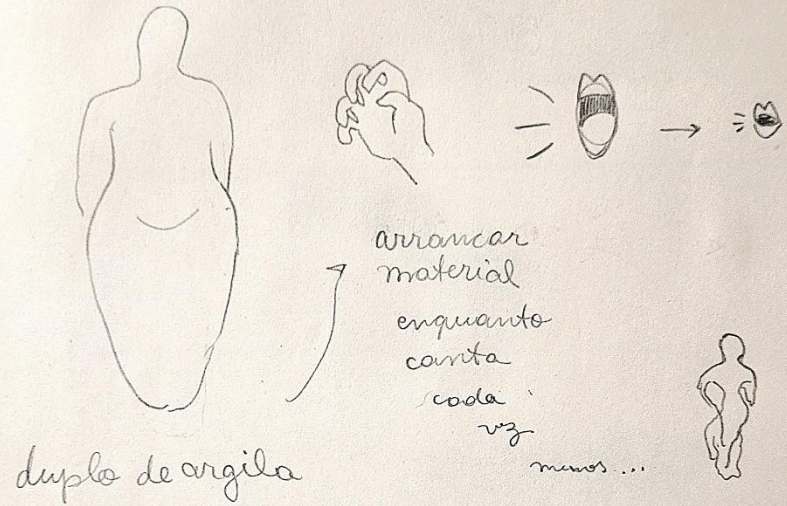 arrancar
material
enquanto
canta
cada
vez
menos...
duplo de argila